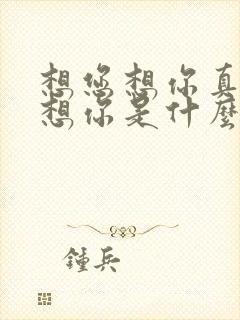 想您想你真
想你是什麼
鍾兵